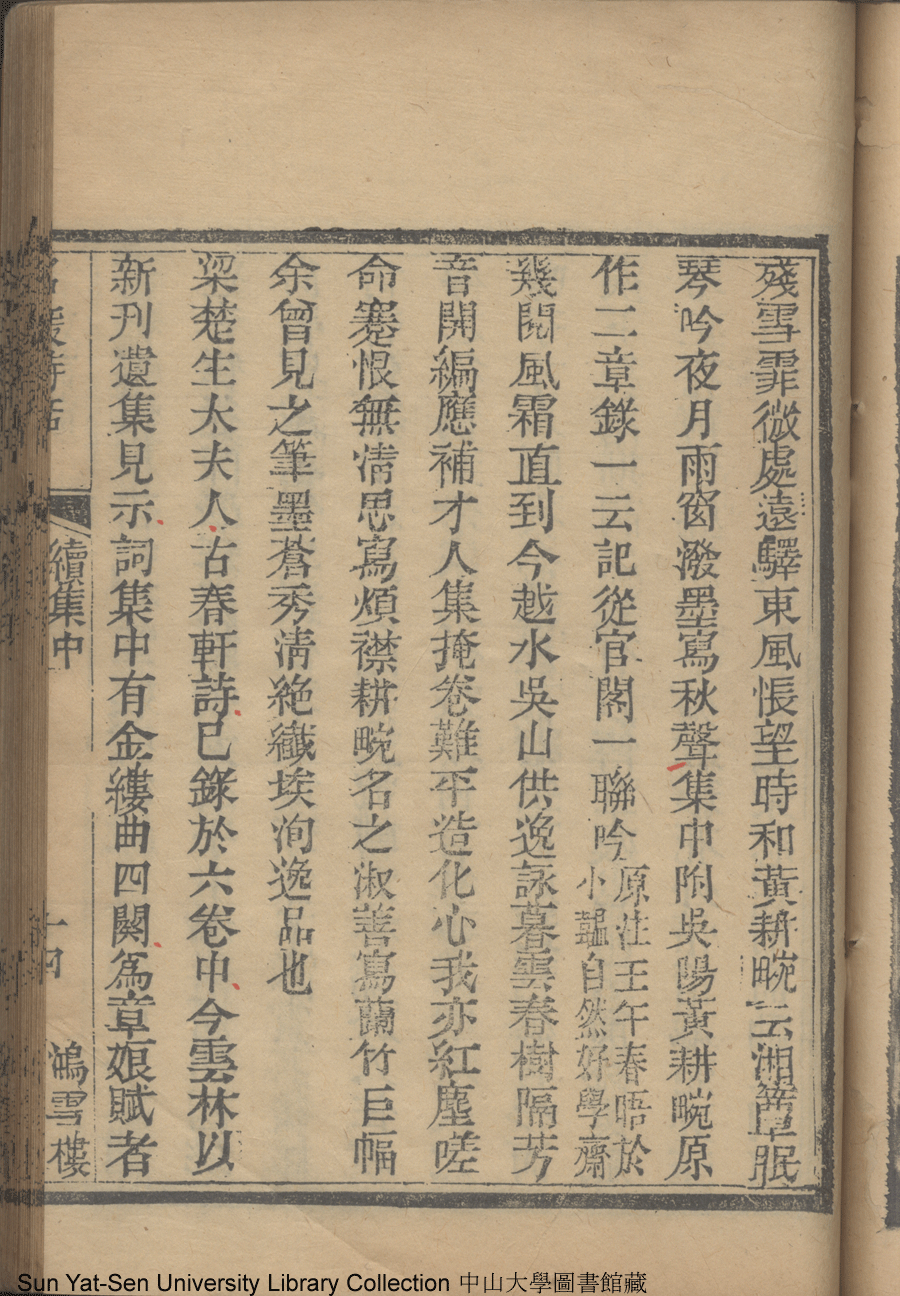 殘雪霏微處遠驛東風悵望時和黃耕畹云湘簟眠
琴吟夜月雨窗潑墨寫秋聲集中附吳陽黃耕畹原
作二章錄一云記從官閣一聯吟原注壬午春晤於
小韞自然好學齋
幾閱風霜直到今越水吳山供逸詠暮雲春樹隔芳
音開編應補才人集掩卷難平造化心我亦紅塵嗟
命蹇恨無清思寫煩襟耕畹名之淑善寫蘭竹巨幅
余曾見之筆墨蒼秀清絶纖埃洵逸品也
梁楚生太夫人古春軒詩已錄於六卷中今雲林以
新刋遺集見示詞集中有金縷曲四闋爲章娘賦者
名媛詩話 續集中 十四 鴻雪樓
Sun Yat-Sen University Library Collection 中山大學圖書館藏